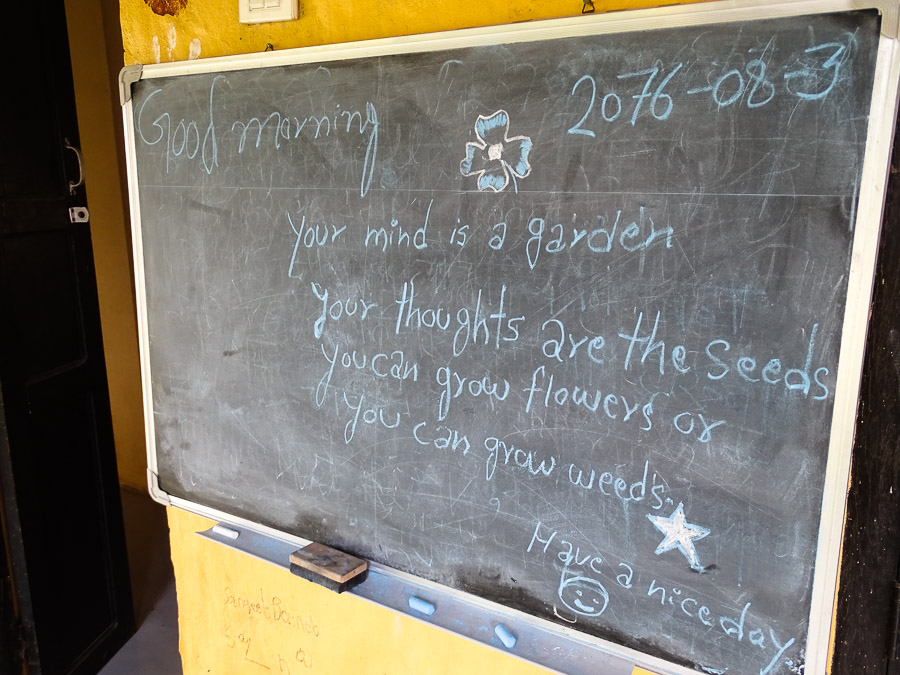 Good morning
2076-08-3
Your mind is a garden
your thoughts are the seeds
you can grow flowers or
you can grow weeds.
Have a nice day